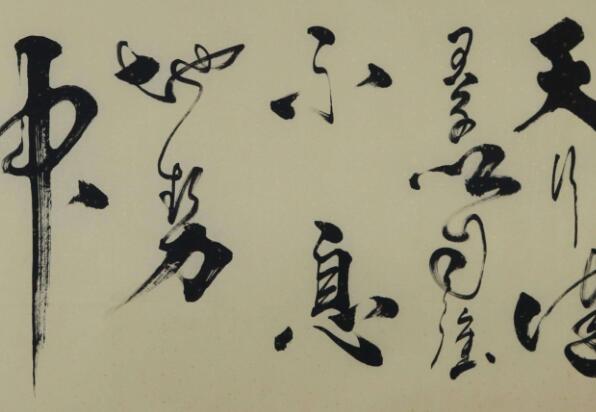 天行健
君子以自強
不息
地勢
坤